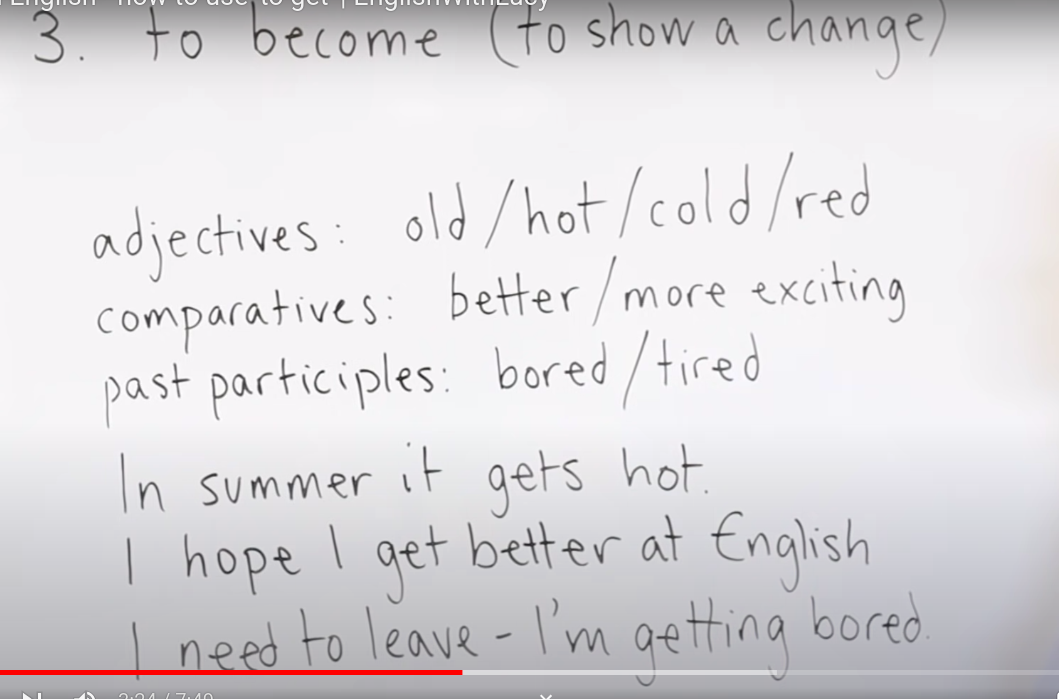 English - how to use 'to get' | EnglishWithLucy
3. to become (to show a change)
adjectives: old/hot/cold/red
comparatives: better/more exciting
past participles: bored/tired
In summer it gets hot.
I hope I get better at English
I need to leave - I'm getting bored.